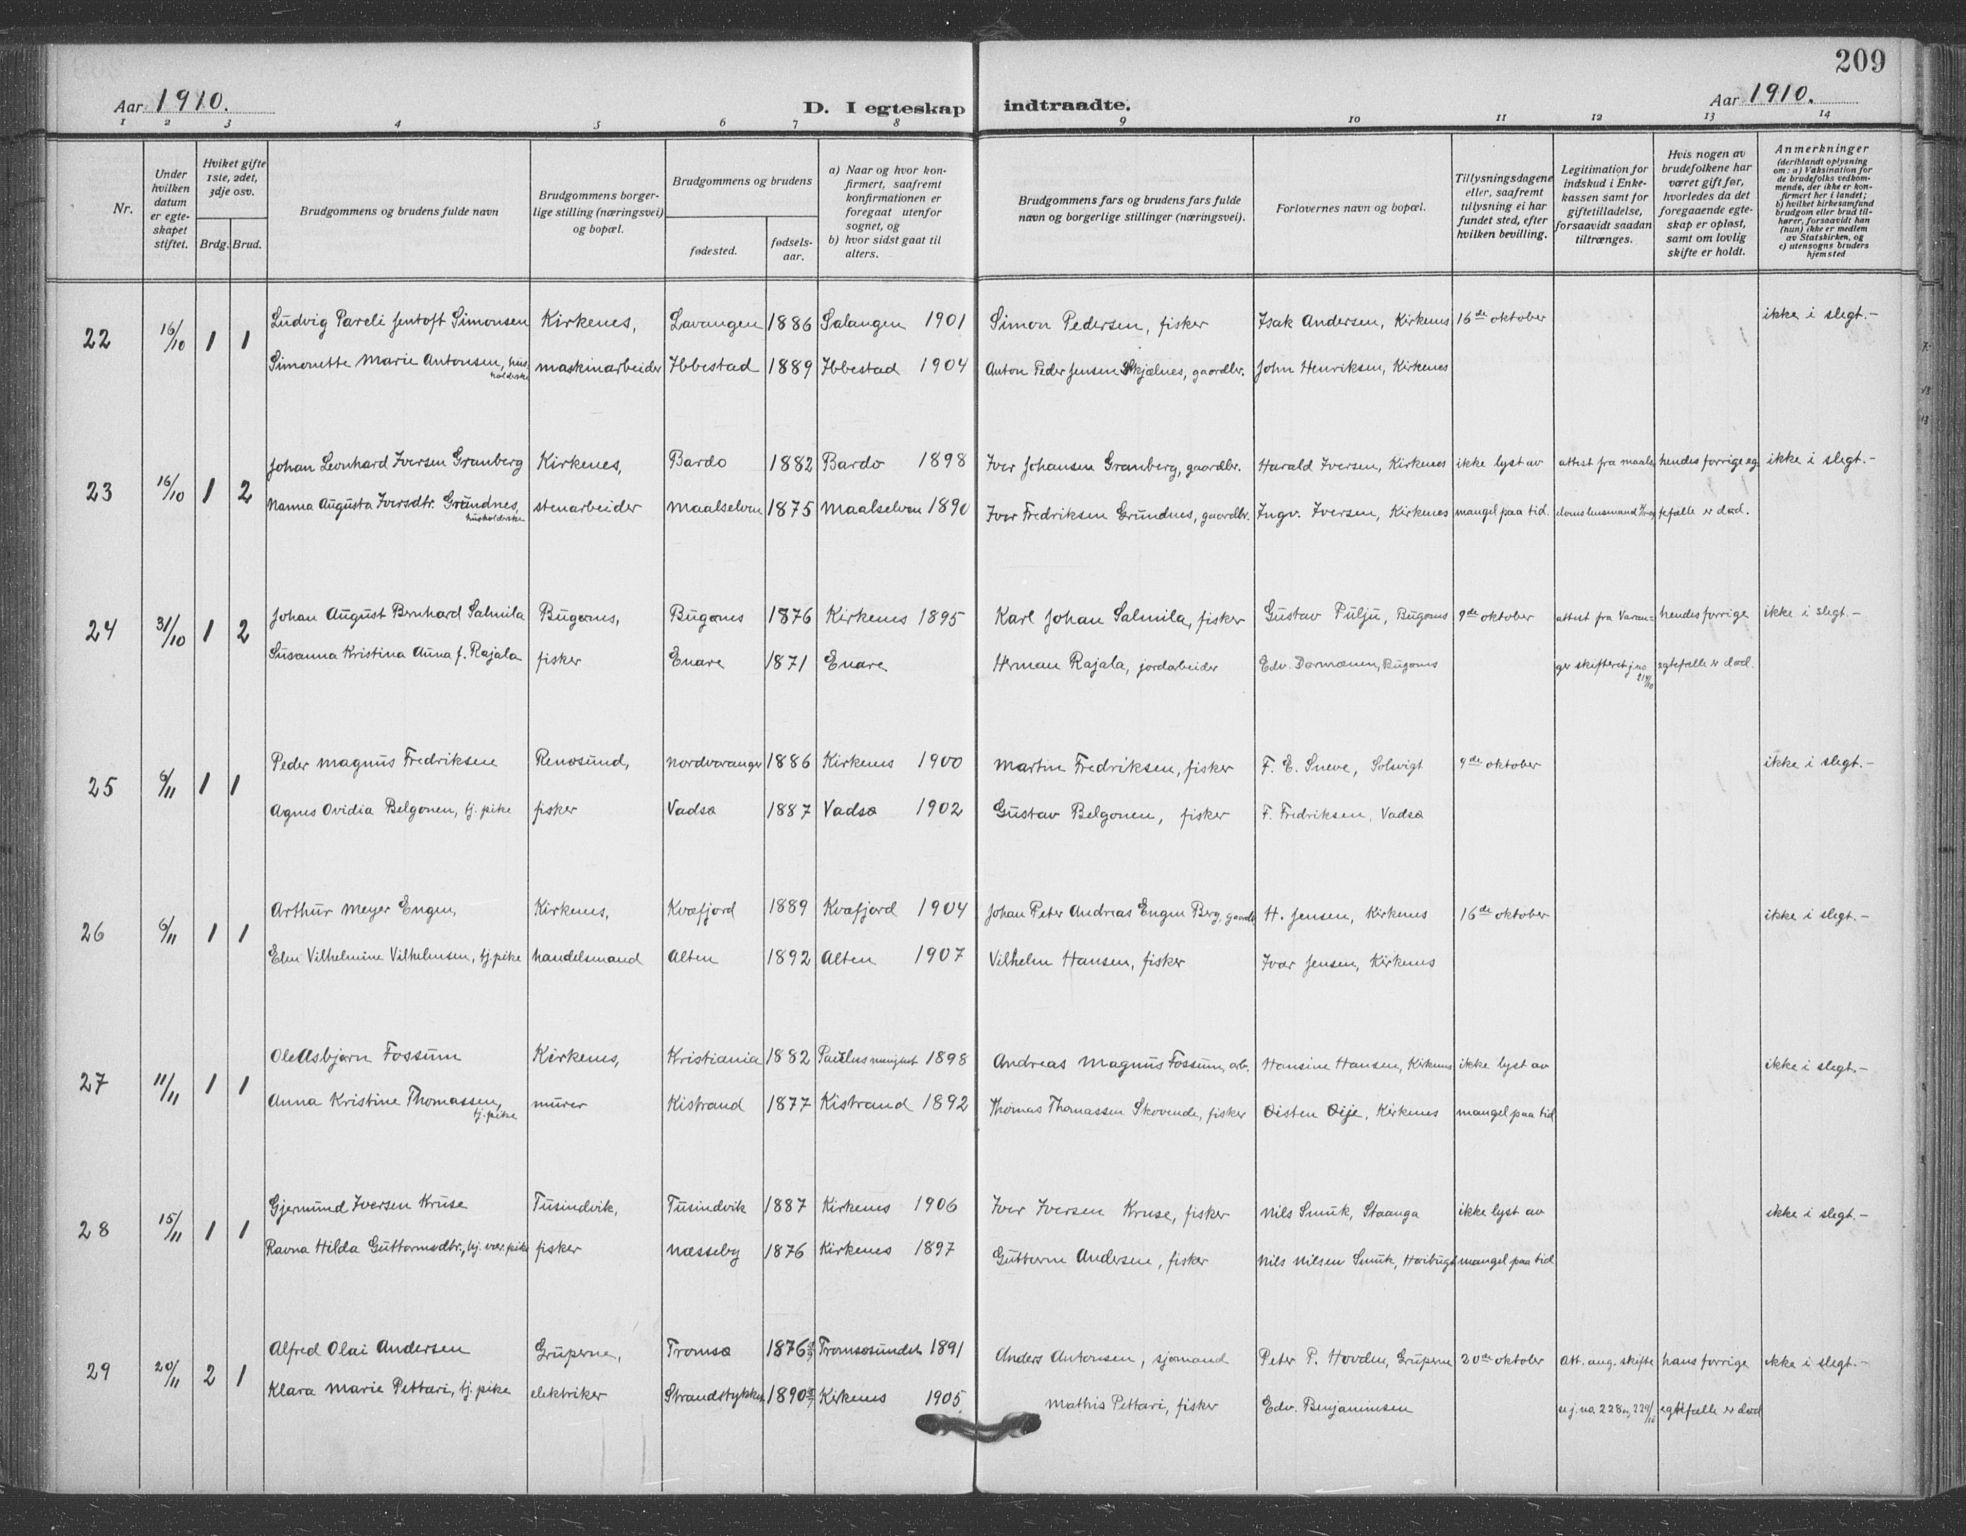 209
Aar 1910.
D. I egteskap indtraadte.
Aar 1910.
1 2 3 4 5 6 7 8 9 10 11 12 13 14
Nr.
Under hvilken datum er egteskapet stiftet.
Hviket gifte 1ste, 2det, 3dje osv.
Brdg. Brud.
Brudgommens og brudens fulde navn
Brudgommens borgerlige stilling (næringsvei) og bopæl.
Brudgommens og brudens
fødested.
fødselsaar.
a) Naar og hvor konfirmert, saafremt konfirmationen er foregaat utenfor sognet, og
b) hvor sidst gaat til alters.
Brudgommens fars og brudens fars fulde navn og borgerlige stillinger (næringsvei).
Forlovernes navn og bopæl.
Tillysningsdagene eller, saafremt tillysning ei har fundet sted, efter hvilken bevilling.
Legitimation for indskud i Enkekassen samt for giftetilladelse, forsaavidt saadan tiltrænges.
Hvis nogen av brudefolkene har været gift før, hvorledes da det foregaaende egteskap er opløst, samt om lovlig skifte er holdt.
Anmerkninger
(deriblandt oplysning om: a) Vaksination for de brudefolks vedkommende, der ikke er konfirmert her i landet; b) hvilket kirkesamfund brudgom eller brud tilhører, forsaavidt han (hun) ikke er medlem av Statskirken, og c) utensogns bruders hjemsted
22 16/10 1 1 Ludvig Pareli Jentoft Simonsen Kirkenes, Lavangen 1886 Salangen 1901 Simon Pedersen, fisker Isak Andersen, Kirkenes 16de oktober ikke i slegt.-
Simonette Marie Antonsen, husholderske maskinarbeider Ibbestad 1889 Ibbestad 1904 Anton Peder Jensen Skjælnes, gaardbr. John Henriksen, Kirkenes
23 16/10 1 2 Johan Leonhard Iversen Granberg Kirkenes, Bardo 1882 Bardo 1898 Iver Johansen Granberg, gaardbr. Harald Iversen, Kirkenes ikke lyst av attest fra maals hendes forrige eg ikke i slegt.-
Nanna Augusta Iversdtr. Grundnes, husholderske stenarbeider Maalselven 1875 Maalselven 1890 Iver Fredriksen Grundnes, gaardbr. Ingv. Iversen, Kirkenes mangel paa tid. elvens lensmand tefælle er død.
24 31/10 1 2 Johan August Bernhard Salmila Bugønes, Bugønes 1876 Kirkenes 1895 Karl Johan Salmila, fisker Gustav Pulju, Bugønes 9de oktober attest fra Varan- hendes forrige ikke i slegt.-
Susanna Kristina Anna f. Rajala fisker Enare 1871 Enare Herman Rajala, jordarbeider Edv. Dørmænen, Bugønes ger skifteret j.no 21 4/10 egtefælle er død.
25 6/11 1 1 Peder Magnus Fredriksen Renøsund, Nordvaranger 1886 Kirkenes 1900 Martin Fredriksen, fisker F. E. Sneve, Solvigt 9de oktober ikke i slegt.-
Agnes Ovidia Belgonen, tj. pike fisker Vadsø 1887 Vadsø 1902 Gustav Belgonen, fisker F. Fredriksen, Vadsø
26 6/11 1 1 Arthur Meyer Engen, Kirkenes, Kvæfjord 1889 Kvæfjord 1904 Johan Peter Andreas Engen Berg, gaardb. H. Jensen, Kirkenes 16de oktober ikke i slegt.-
Elen Vilhelmine Vilhelmsen, tj.pike handelsmand Alten 1892 Alten 1907 Vilhelm Hansen, fisker Ivar Jensen, Kirkenes
27 11/11 1 1 Ole Asbjørn Fossum Kirkenes, Kristiania 1882 Paulus menighet 1898 Andreas Magnus Fossum, arb. Hansine Hansen, Kirkenes ikke lyst av ikke i slegt.-
Anna Kristine Thomassen, tj. pike murer Kistrand 1877 Kistrand 1892 Thomas Thomassen Skovende, fisker Øisten Øije, Kirkenes mangel paa tid
28 15/11 1 1 Gjermund Iversen Kruse Tusindvik, Tusindvik 1887 Kirkenes 1906 Iver Iversen Kruse, fisker Nils Smuk, Staanga ikke lyst av ikke i slegt.-
Ravna Hilda Guttormsdtr., tj. vær. pike fisker Næsseby 1876 Kirkenes 1897 Guttorm Andersen, fisker Nils Nilsen Smuk, Høibugt mangel paa tid
29 20/11 2 1 Alfred Olai Andersen Gruperne, Tromsø 1876 Tromsøsundet 1891 Anders Antonsen, sjømand Peter P. Hovden, Gruperne 20de oktober Att. ang. skifte hans forrige ikke i slegt.-
Klara Marie Pettari, tj. pike elektriker Strandstykket 1890 Kirkenes 1905 Mathis Pettari, fisker Edv. Benjaminsen se j.no. 228 egtefælle er død